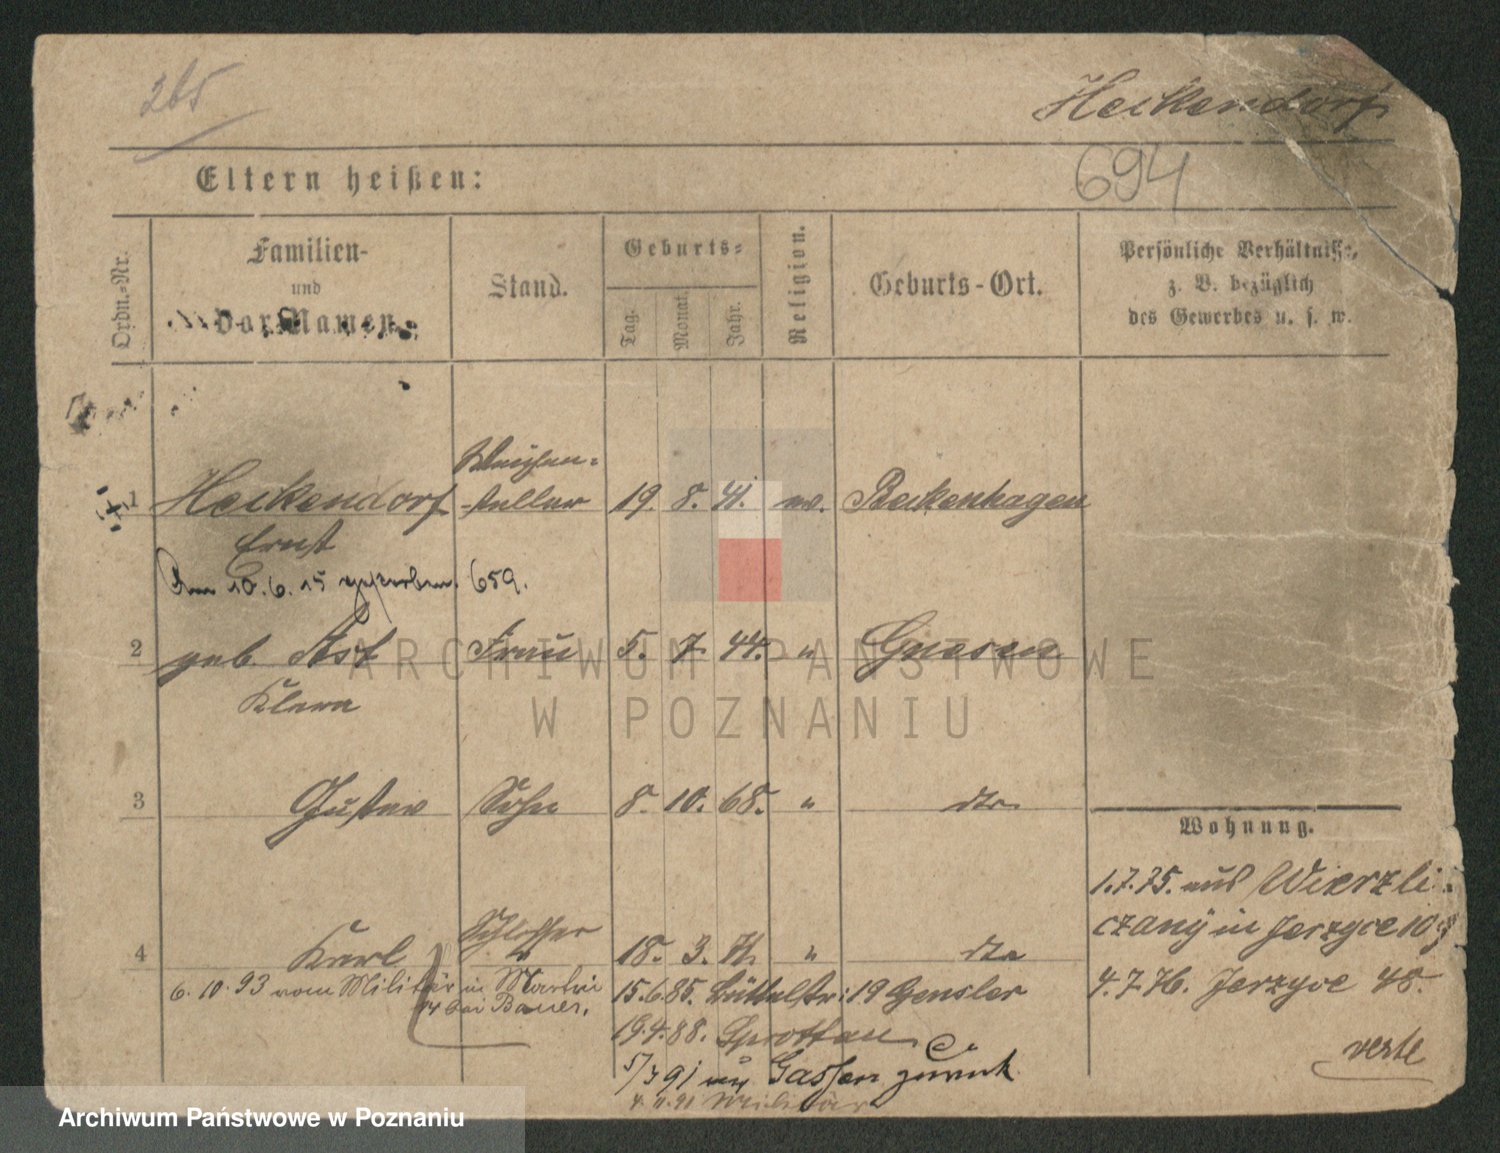 265
Heckendorf
694
Eltern heißen:
Ordn.-Nr.
Familien-
und
Vor-Namen.
Stand.
Geburts-
Tag. Monat. Jahr.
Religion.
Geburts-Ort.
Persönliche Verhältnisse,
z. B. bezüglich
des Gewerbes u. s. w.
Weichen-
1 Heckendorf -steller 19. 8. 41. ev. Beckenhagen
Ernst
Am 10.6.15 verstorben. 659.
2 geb. Ast Frau 5. 7. 44. " Gnesen
Klara
3 Gustav Sohn 8. 10. 68. " dto
Wohnung.
1.7.75. aus Wierzli-
czany in Jerzyce 109
Schlosser
4 Karl 18. 3. 71. " dto
6.10.93 vom Militär in Martin
74 bei Bauer.
15.6.85. Büttelstr: 19 Gensler
4.7.76. Jerzyce 48.
19.4.88. Sprottau
91 Gassen zurück
4.11.91 Militär
verte
ARCHIWUM PAŃSTWOWE
W POZNANIU
Archiwum Państwowe w Poznaniu